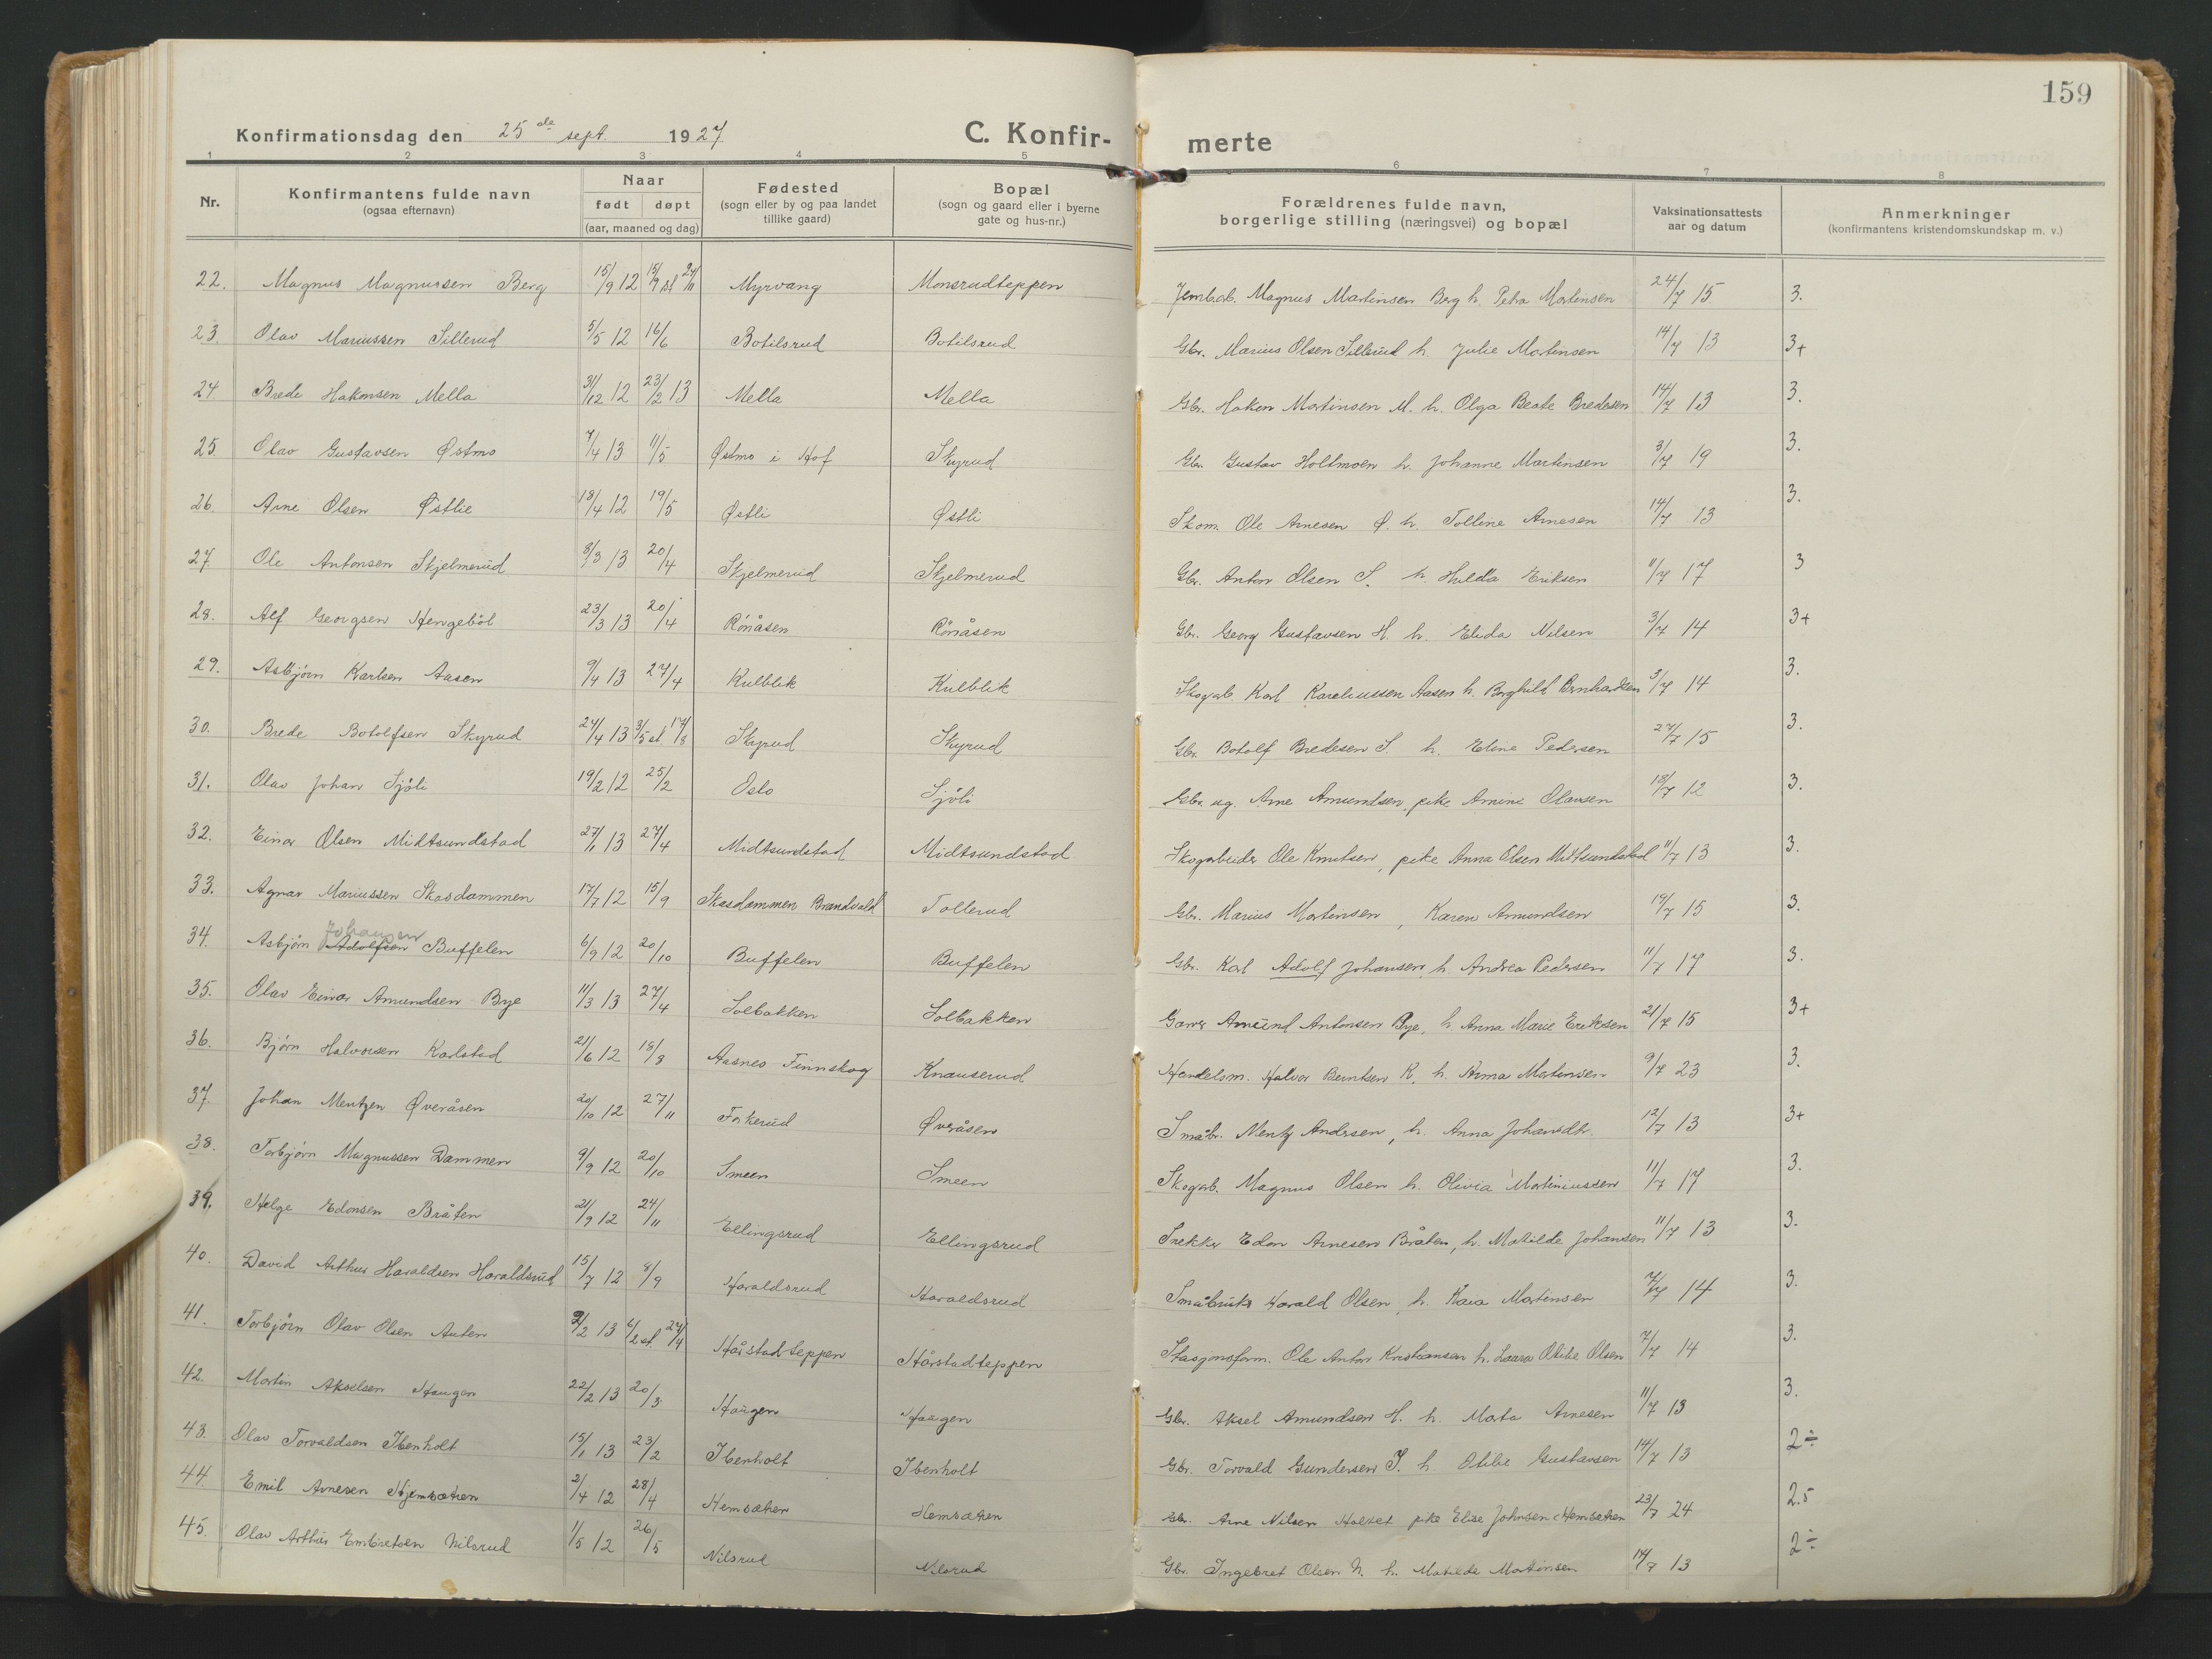 159
Konfirmationsdag den 25 de sept. 1927 C. Konfir- merte
1 2 3 4 5 6 7 8
Nr. Konfirmantens fulde navn (ogsaa efternavn) Naar født døpt (aar, maaned og dag) Fødested (sogn eller by og paa landet tillike gaard) Bopæl (sogn og gaard eller i byerne gate og hus-nr.) Forældrenes fulde navn, borgerlige stilling (næringsvei) og bopæl Vaksinationsattests aar og datum Anmerkninger (konfirmantens kristendomskundskap m. v.)
22. Magnus Magnussen Berg 15/9 12 15/9 st 24/11 Myrvang Monsrudteppen Jernb.arb. Magnus Martinsen Berg h. Petra Mortensen 24/7 15 3.
23. Olav Mariussen Sillerud 5/5 12 16/6 Botilsrud Botilsrud Gbr. Marius Olsen Sillerud h. Julie Mortensen 14/7 13 3+
24. Brede Hakonsen Mella 31/12 12 23/2 13 Mella Mella Gbr. Hakon Martinsen M. h. Olga Beate Bredesen 14/7 13 3.
25. Olav Gustavsen Østmo 7/4 13 11/5 Østmo i Hof Skyrud Gbr. Gustav Holtmoen h. Johanne Martinsen 3/7 19 3.
26. Arne Olsen Østlie 18/4 12 19/5 Østli Østli Skom. Ole Arnesen Ø. h. Tolline Arnesen 14/7 13 3.
27. Ole Antonsen Skjelmerud 8/3 13 20/4 Skjelmerud Skjelmerud Gbr. Anton Olsen S. h. Hulda Eriksen 11/7 17 3
28. Alf Georgsen Hengebøl 23/3 13 20/4 Rönåsen Rönåsen Gbr. Georg Gustavsen H. h. Elida Nilsen 3/7 14 3+
29. Asbjørn Karlsen Aasen 9/4 13 27/4 Kulblik Kulblik Skogarb. Karl Kareliussen Aasen h. Borghild Bernhardsen 3/7 14 3.
30. Brede Botolfsen Skyrud 24/4 13 3/5 st 17/8 Skyrud Skyrud Gbr. Botolf Bredesen S. h. Eline Pedersen 27/7 15 3.
31. Olav Johan Sjöli 19/2 12 25/2 Oslo Sjöli Gbr. ug. Arne Amundsen, pike Amine Olausen 18/7 12 3.
32. Einar Olsen Midtsundstad 27/1 13 27/4 Midtsundstad Midtsundstad Skogarbeider Ole Knutsen, pike Anna Olsen Midtsundstad 11/7 13 3.
33. Agnar Mariussen Skasdammen 17/7 12 15/9 Skasdammen Brandvald Tollerud Gbr. Marius Mortensen, Karen Amundsen 19/7 15 3.
Johansen
34. Asbjørn Adolfsen Buffelen 6/9 12 20/10 Buffelen Buffelen Gbr. Karl Adolf Johansen h. Andrea Pedersen 11/7 17 3.
35. Olav Einar Amundsen Bye 11/3 13 27/4 Solbakken Solbakken Garver Amund Antonsen Bye, h. Anna Marie Eriksen 21/7 15 3+
36. Bjørn Halvorsen Karlstad 21/6 12 18/8 Aasnes Finnskog Knauserud Handelsm. Halvor Berntsen K. h. Anna Mortensen 9/7 23 3.
37. Johan Mentzen Øveråsen 20/10 12 27/11 Fakerud Øveråsen Småbr. Mentz Andersen, h. Anna Johansdtr. 12/7 13 3+
38. Torbjørn Magnussen Dammen 9/9 12 20/10 Smeen Smeen Skogarb. Magnus Olsen h. Olivia Martiniussen 11/7 17 3.
39. Helge Edonsen Bråten 21/9 12 24/11 Ellingsrud Ellingsrud Snekker Edon Arnesen Bråten, h. Matilde Johansen 11/7 13 3.
40. David Arthur Haraldsen Haraldsrud 15/7 12 8/9 Haraldsrud Haraldsrud Småbruker Harald Olsen, h. Kaia Mortensen 7/7 14 3.
41. Torbjörn Olav Olsen Auten 2/2 13 6/2 st 27/4 Hårstadteppen Hårstadteppen Stasjonsform. Ole Anton Kristiansen h. Laura Otilie Olsen 7/7 14 3.
42. Martin Akselsen Haugen 22/2 13 20/3 Haugen Haugen Gbr. Aksel Amundsen H. h. Marta Arnesen 11/7 13 3.
43. Olav Torvaldsen Ibenholt 15/1 13 23/2 Ibenholt Ibenholt Gbr. Torvald Gundersen I. h. Otilie Gustavsen 14/7 13 2÷
44. Emil Arnesen Hjemsætren 2/4 12 28/4 Hemsætren Hemsætren Gbr. Arne Nilsen Holset pike Elise Johnsen Hemsætren 23/7 24 2.5
45. Olav Arthur Embretsen Nilsrud 1/5 12 26/5 Nilsrud Nilsrud Gbr. Ingebret Olsen N. h. Matilde Mortensen 14/7 13 2÷